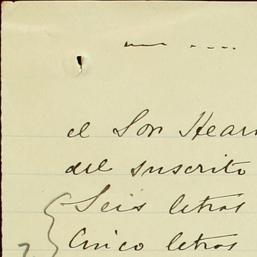 el Son Hear
del suscrito
Seis letras
Cinco letras